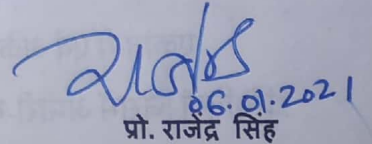 06.01.2021
प्रो. राजेंद्र सिंह